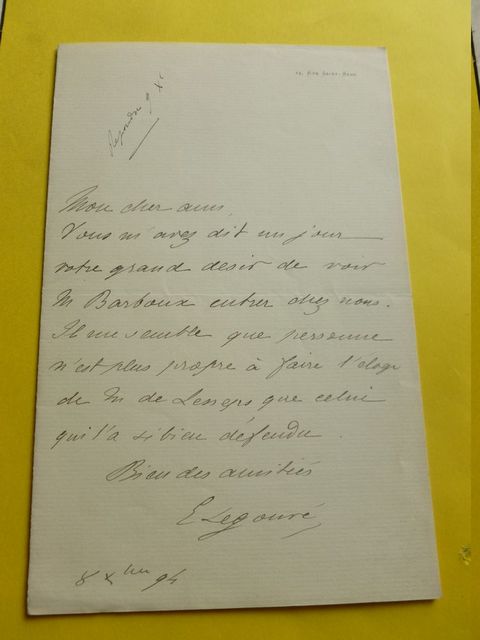 14, Rue Saint-Marc
Repondre 9 Xe
Mon cher ami,
Vous m'avez dit un jour
votre grand desir de voir
M Barboux entrer chez nous.
Il me semble que personne
n'est plus propre à faire l'eloge
de M de Lesseps que celui
qui l'a si bien défendu.
Bien des amitiés
E Legouvé
8 Xbre 94